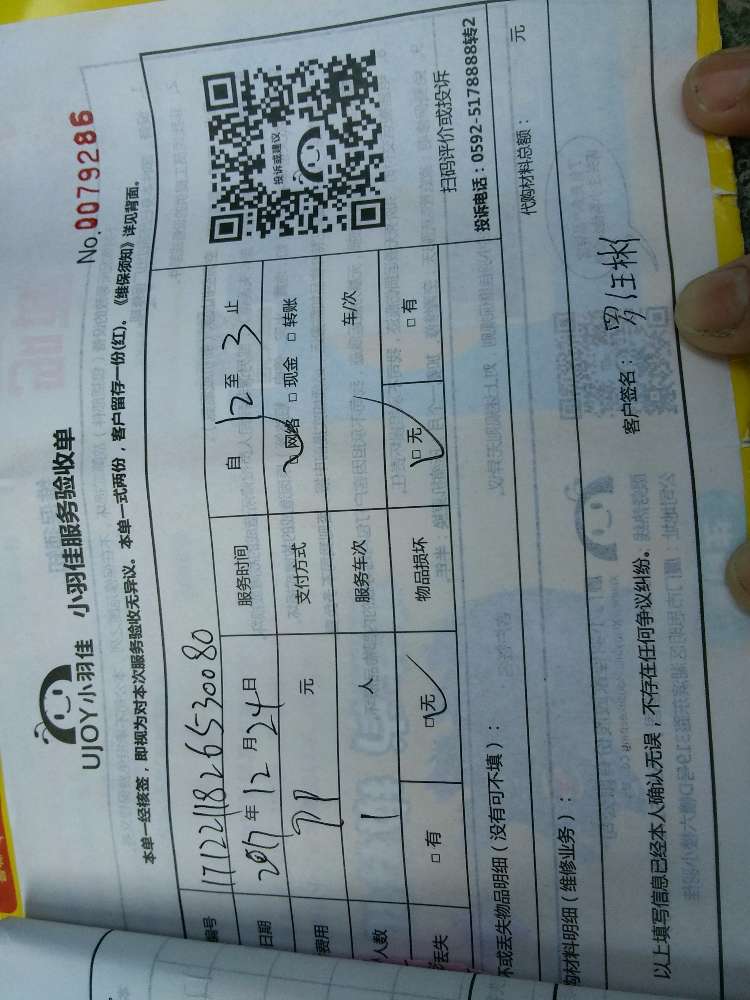 UJOY小羽佳 小羽佳服务验收单
No.0079286
本单一经核签，即视为对本次服务验收无异议。本单一式两份，客户留存一份(红)。《维保须知》详见背面。
编号 1712211826530080
日期 2017年12月24日 服务时间 自12至3止
费用 元 支付方式 网络 □现金 □转账
人数 1 人 服务车次 车/次
丢失 □有 □无 物品损坏 □无 □有
投诉或建议
扫码评价或投诉
投诉电话：0592-5178888转2
坏或丢失物品明细（没有可不填）：
购材料明细（维修业务）： 代购材料总额： 元
以上填写信息已经本人确认无误，不存在任何争议纠纷。 客户签名：